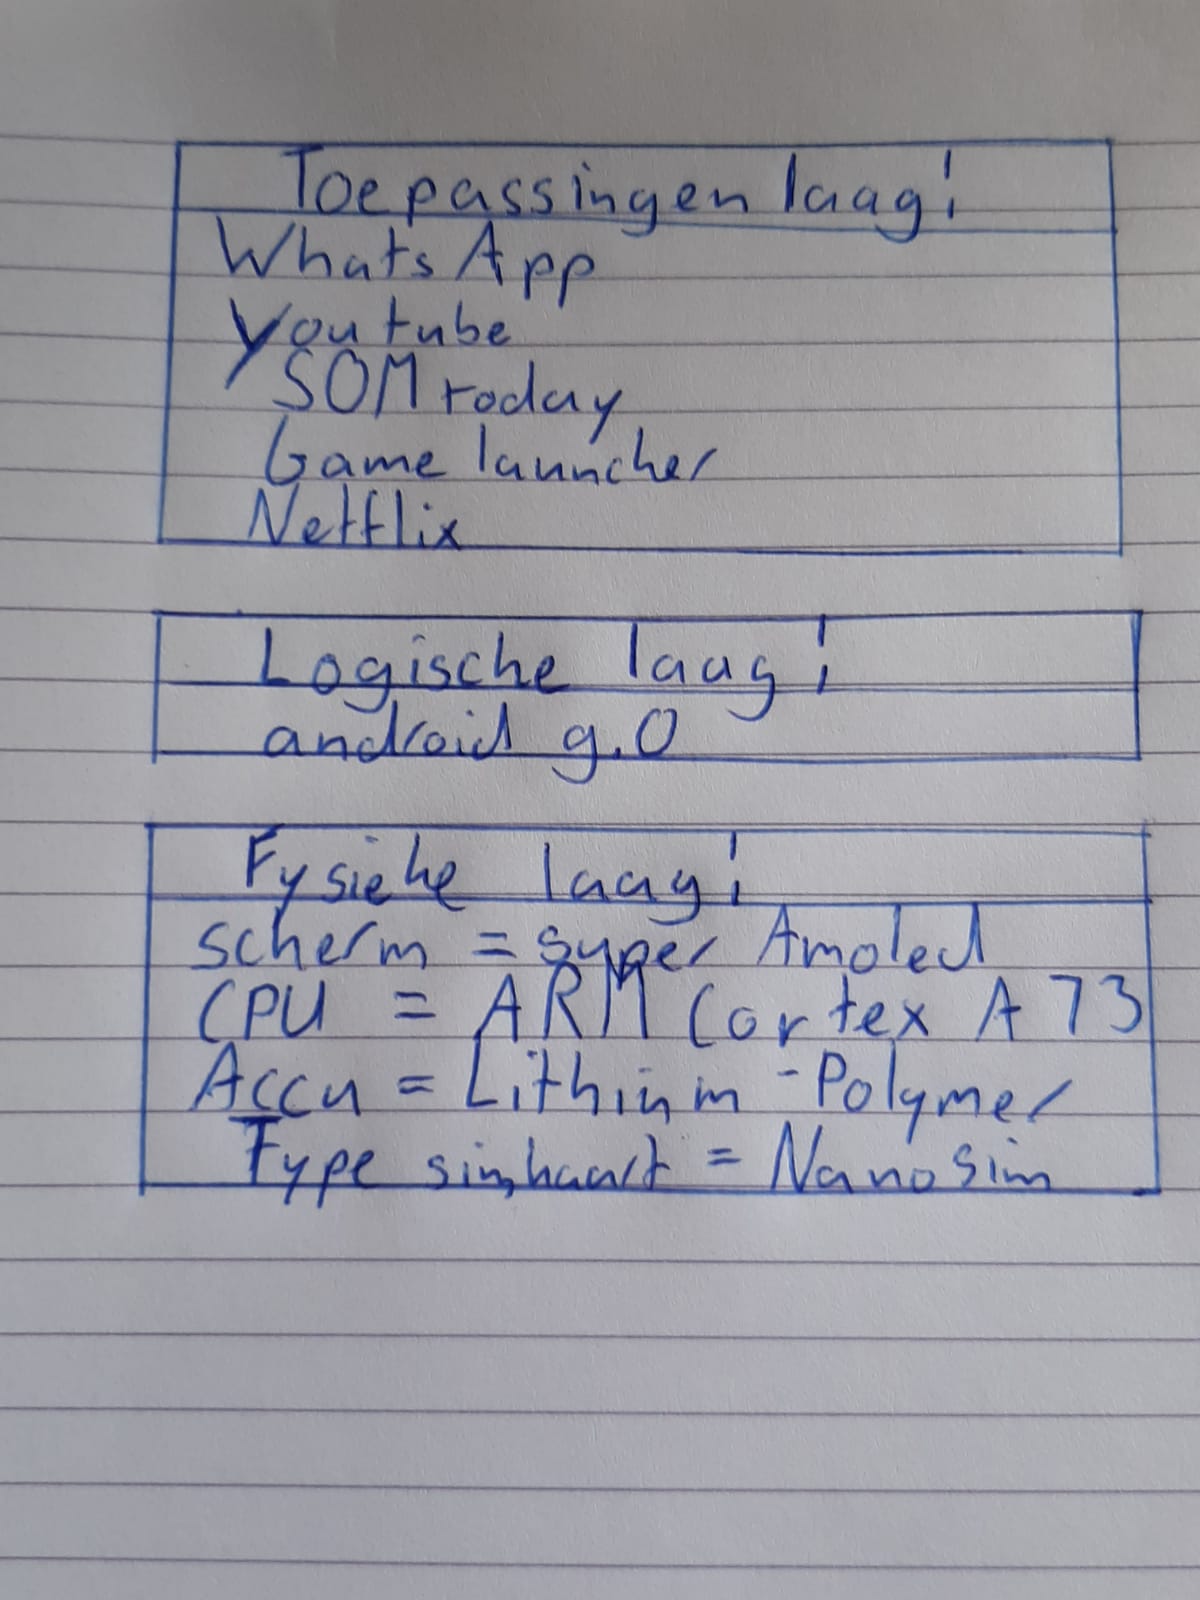 Toepassingen laag:
WhatsApp
Youtube
SOMtoday
Game launcher
Netflix
Logische laag:
android 9.0
Fysieke laag:
scherm = super Amoled
CPU = ARM Cortex A73
Accu = Lithium-Polymer
Type simkaart = Nano Sim